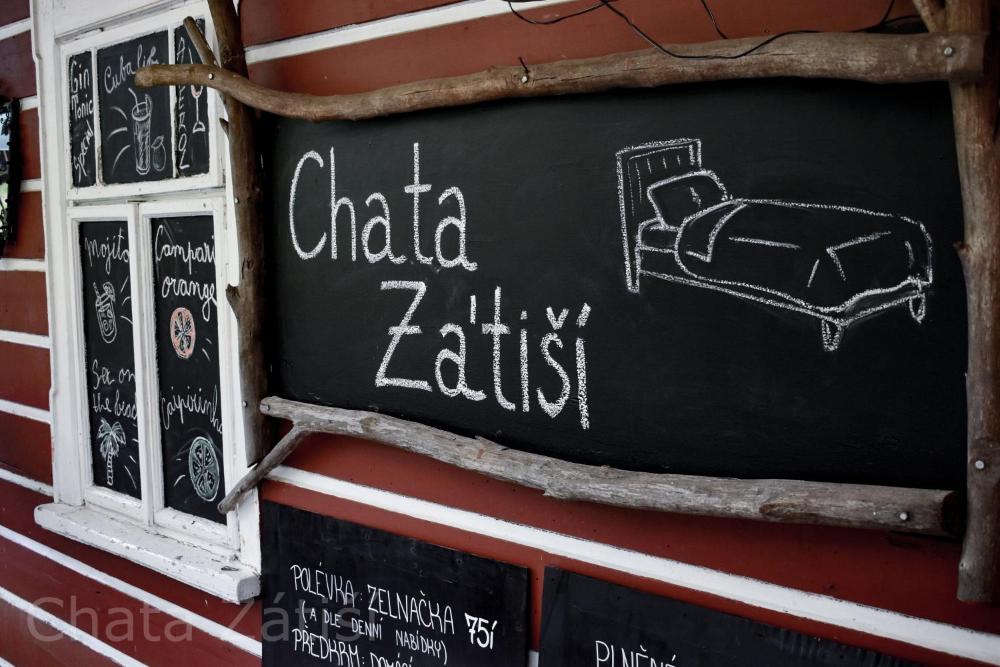 Gin
Tonic
Special
Cuba libre
Mojito
Campari
orange
Sex on
the beach
Caipirinha
Chata
Zátiší
POLÉVKA: ZELNAČKA 75,-
(A DLE DENNÍ NABÍDKY)
PŘEDKRM:
PLNĚNÉ
Chata Zátiší